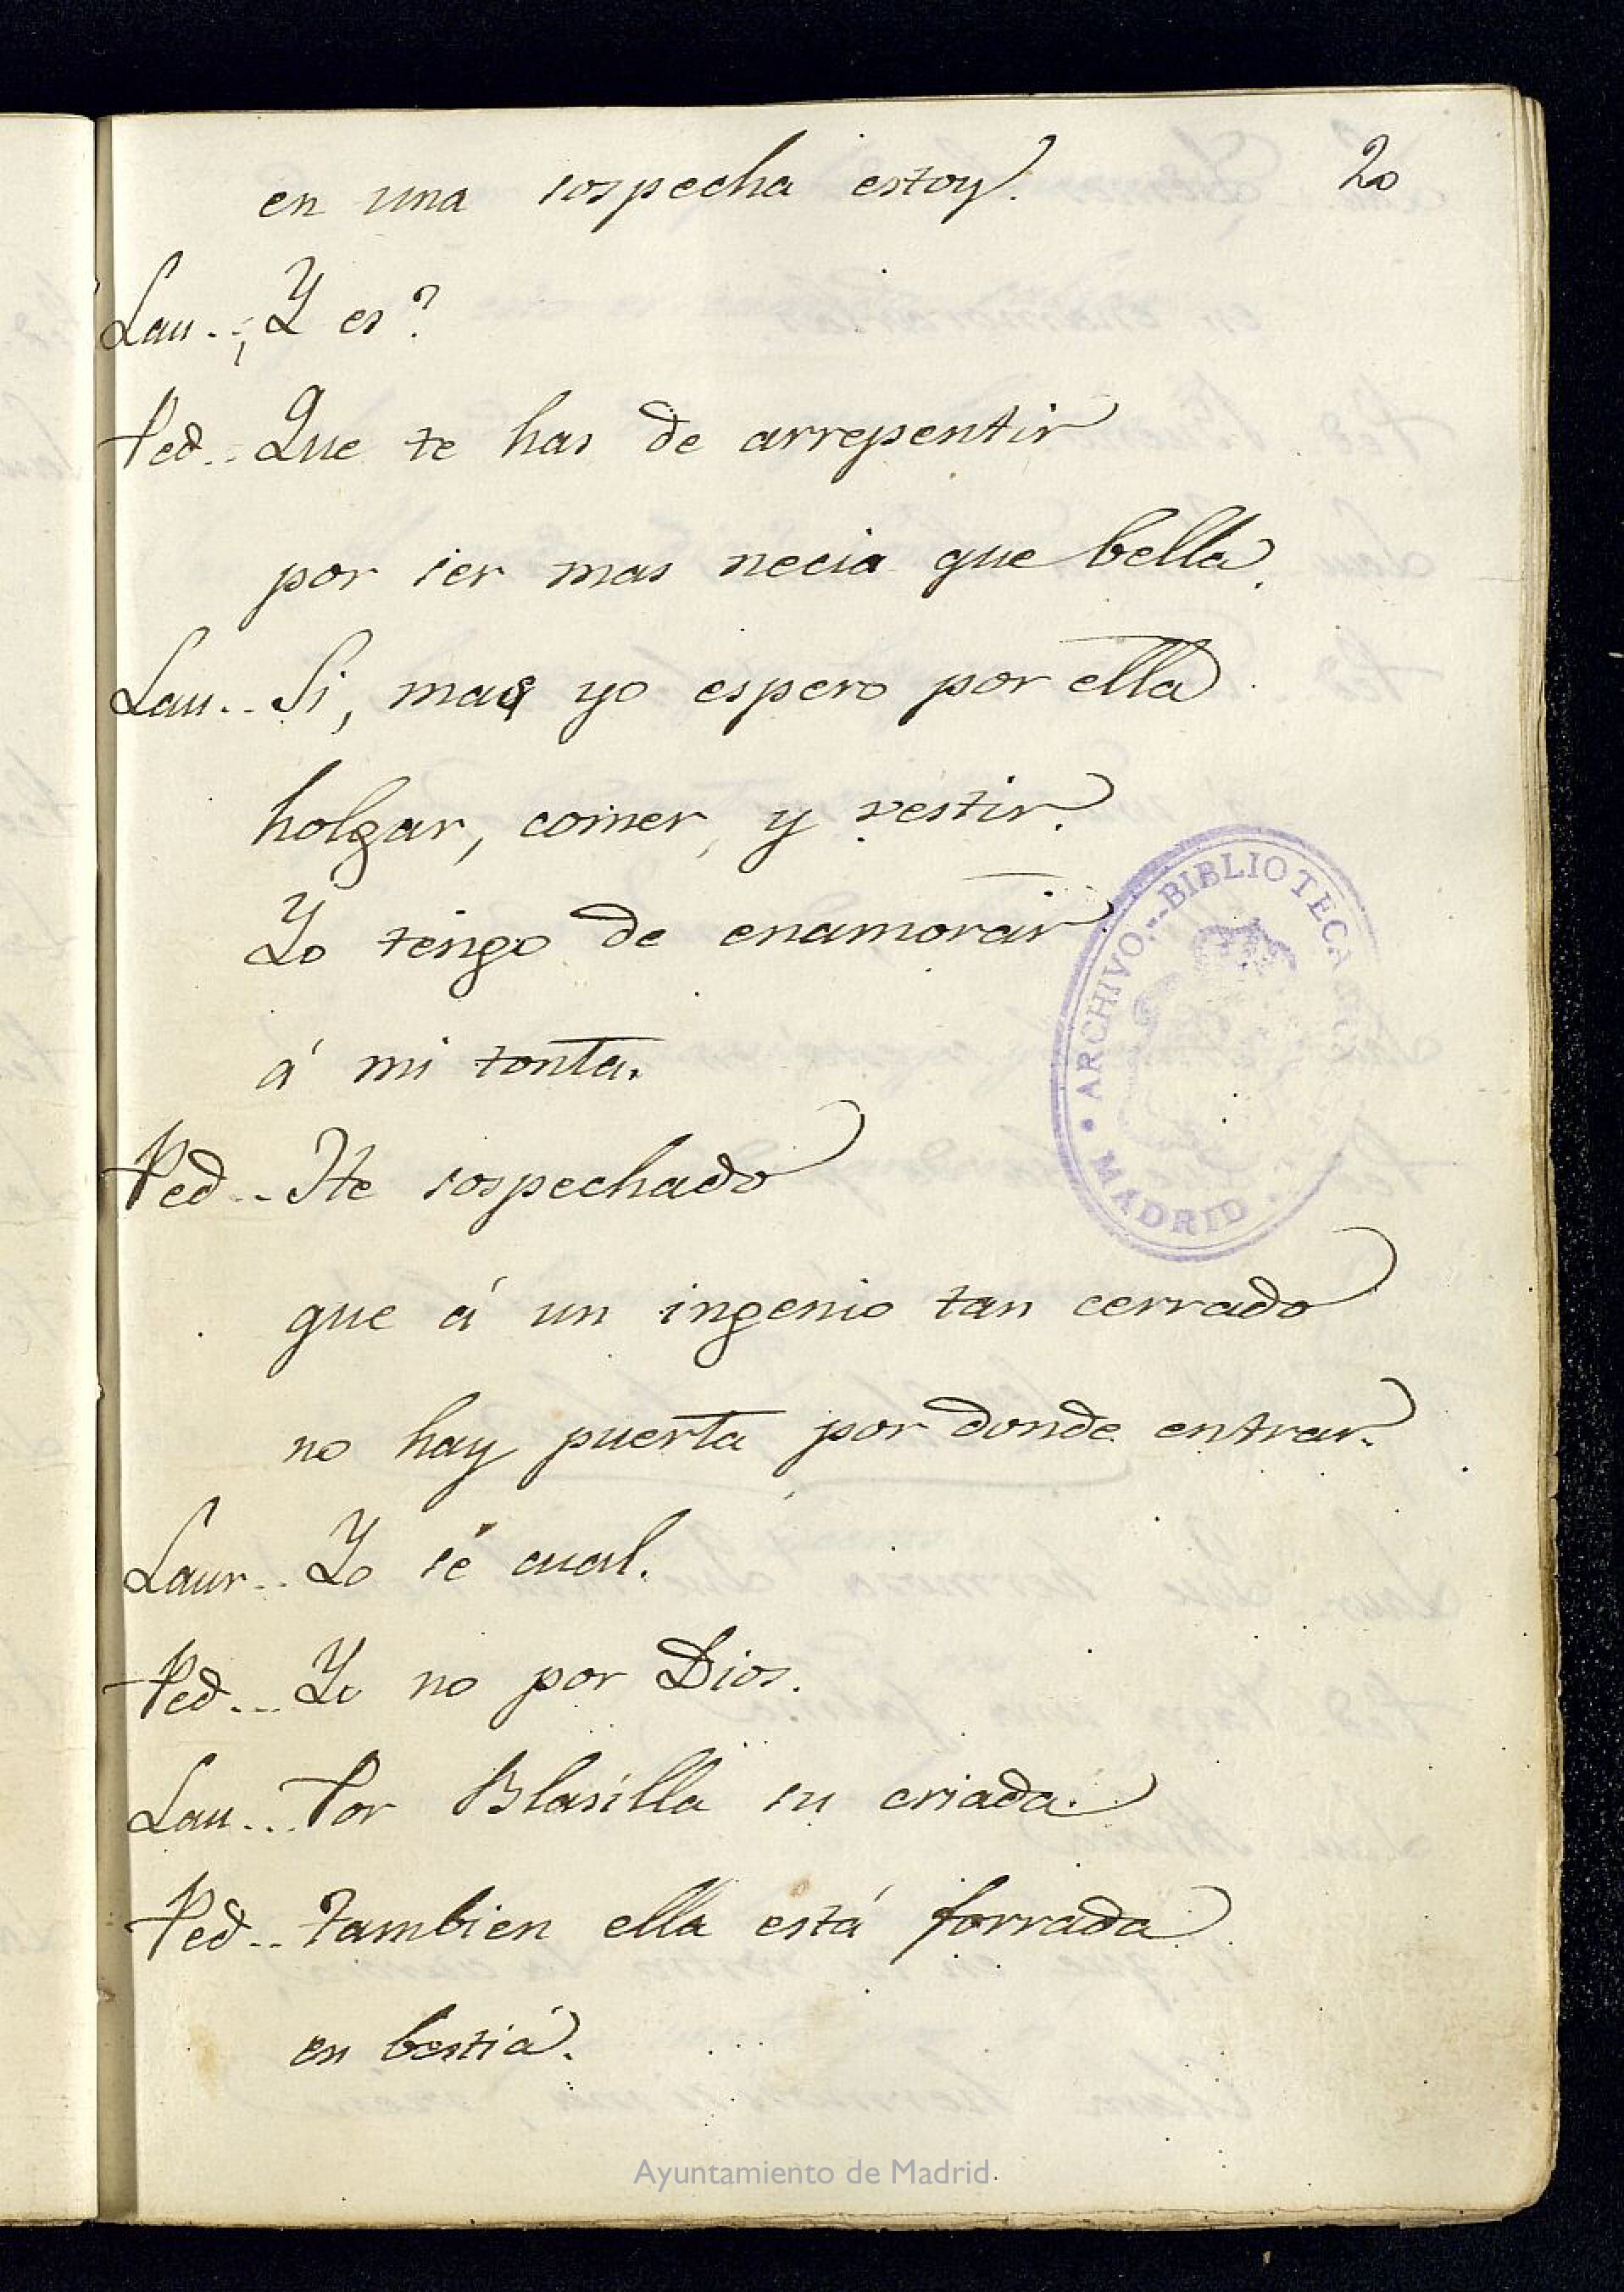 en una sospecha estoy.
20
Lau.. ¿Y es?
Ped.. Que te has de arrepentir
por ser mas necia que bella.
Lau.. Si, mas yo espero por ella
holgar, comer, y vestir.
Yo tengo de enamorar
á mi tonta.
Ped.. He sospechado
que á un ingenio tan cerrado
no hay puerta por donde entrar.
Laur.. Yo sé cual.
Ped... Yo no por Dios.
Lau... Por Blasilla su criada.
Ped.. Tambien ella está forrada
en bestia.
ARCHIVO-BIBLIOTECA
MADRID
Ayuntamiento de Madrid